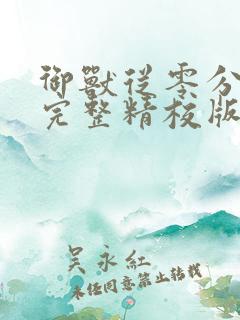 御獸從零分
完整精校版
吳永紅
未經同意禁止轉載